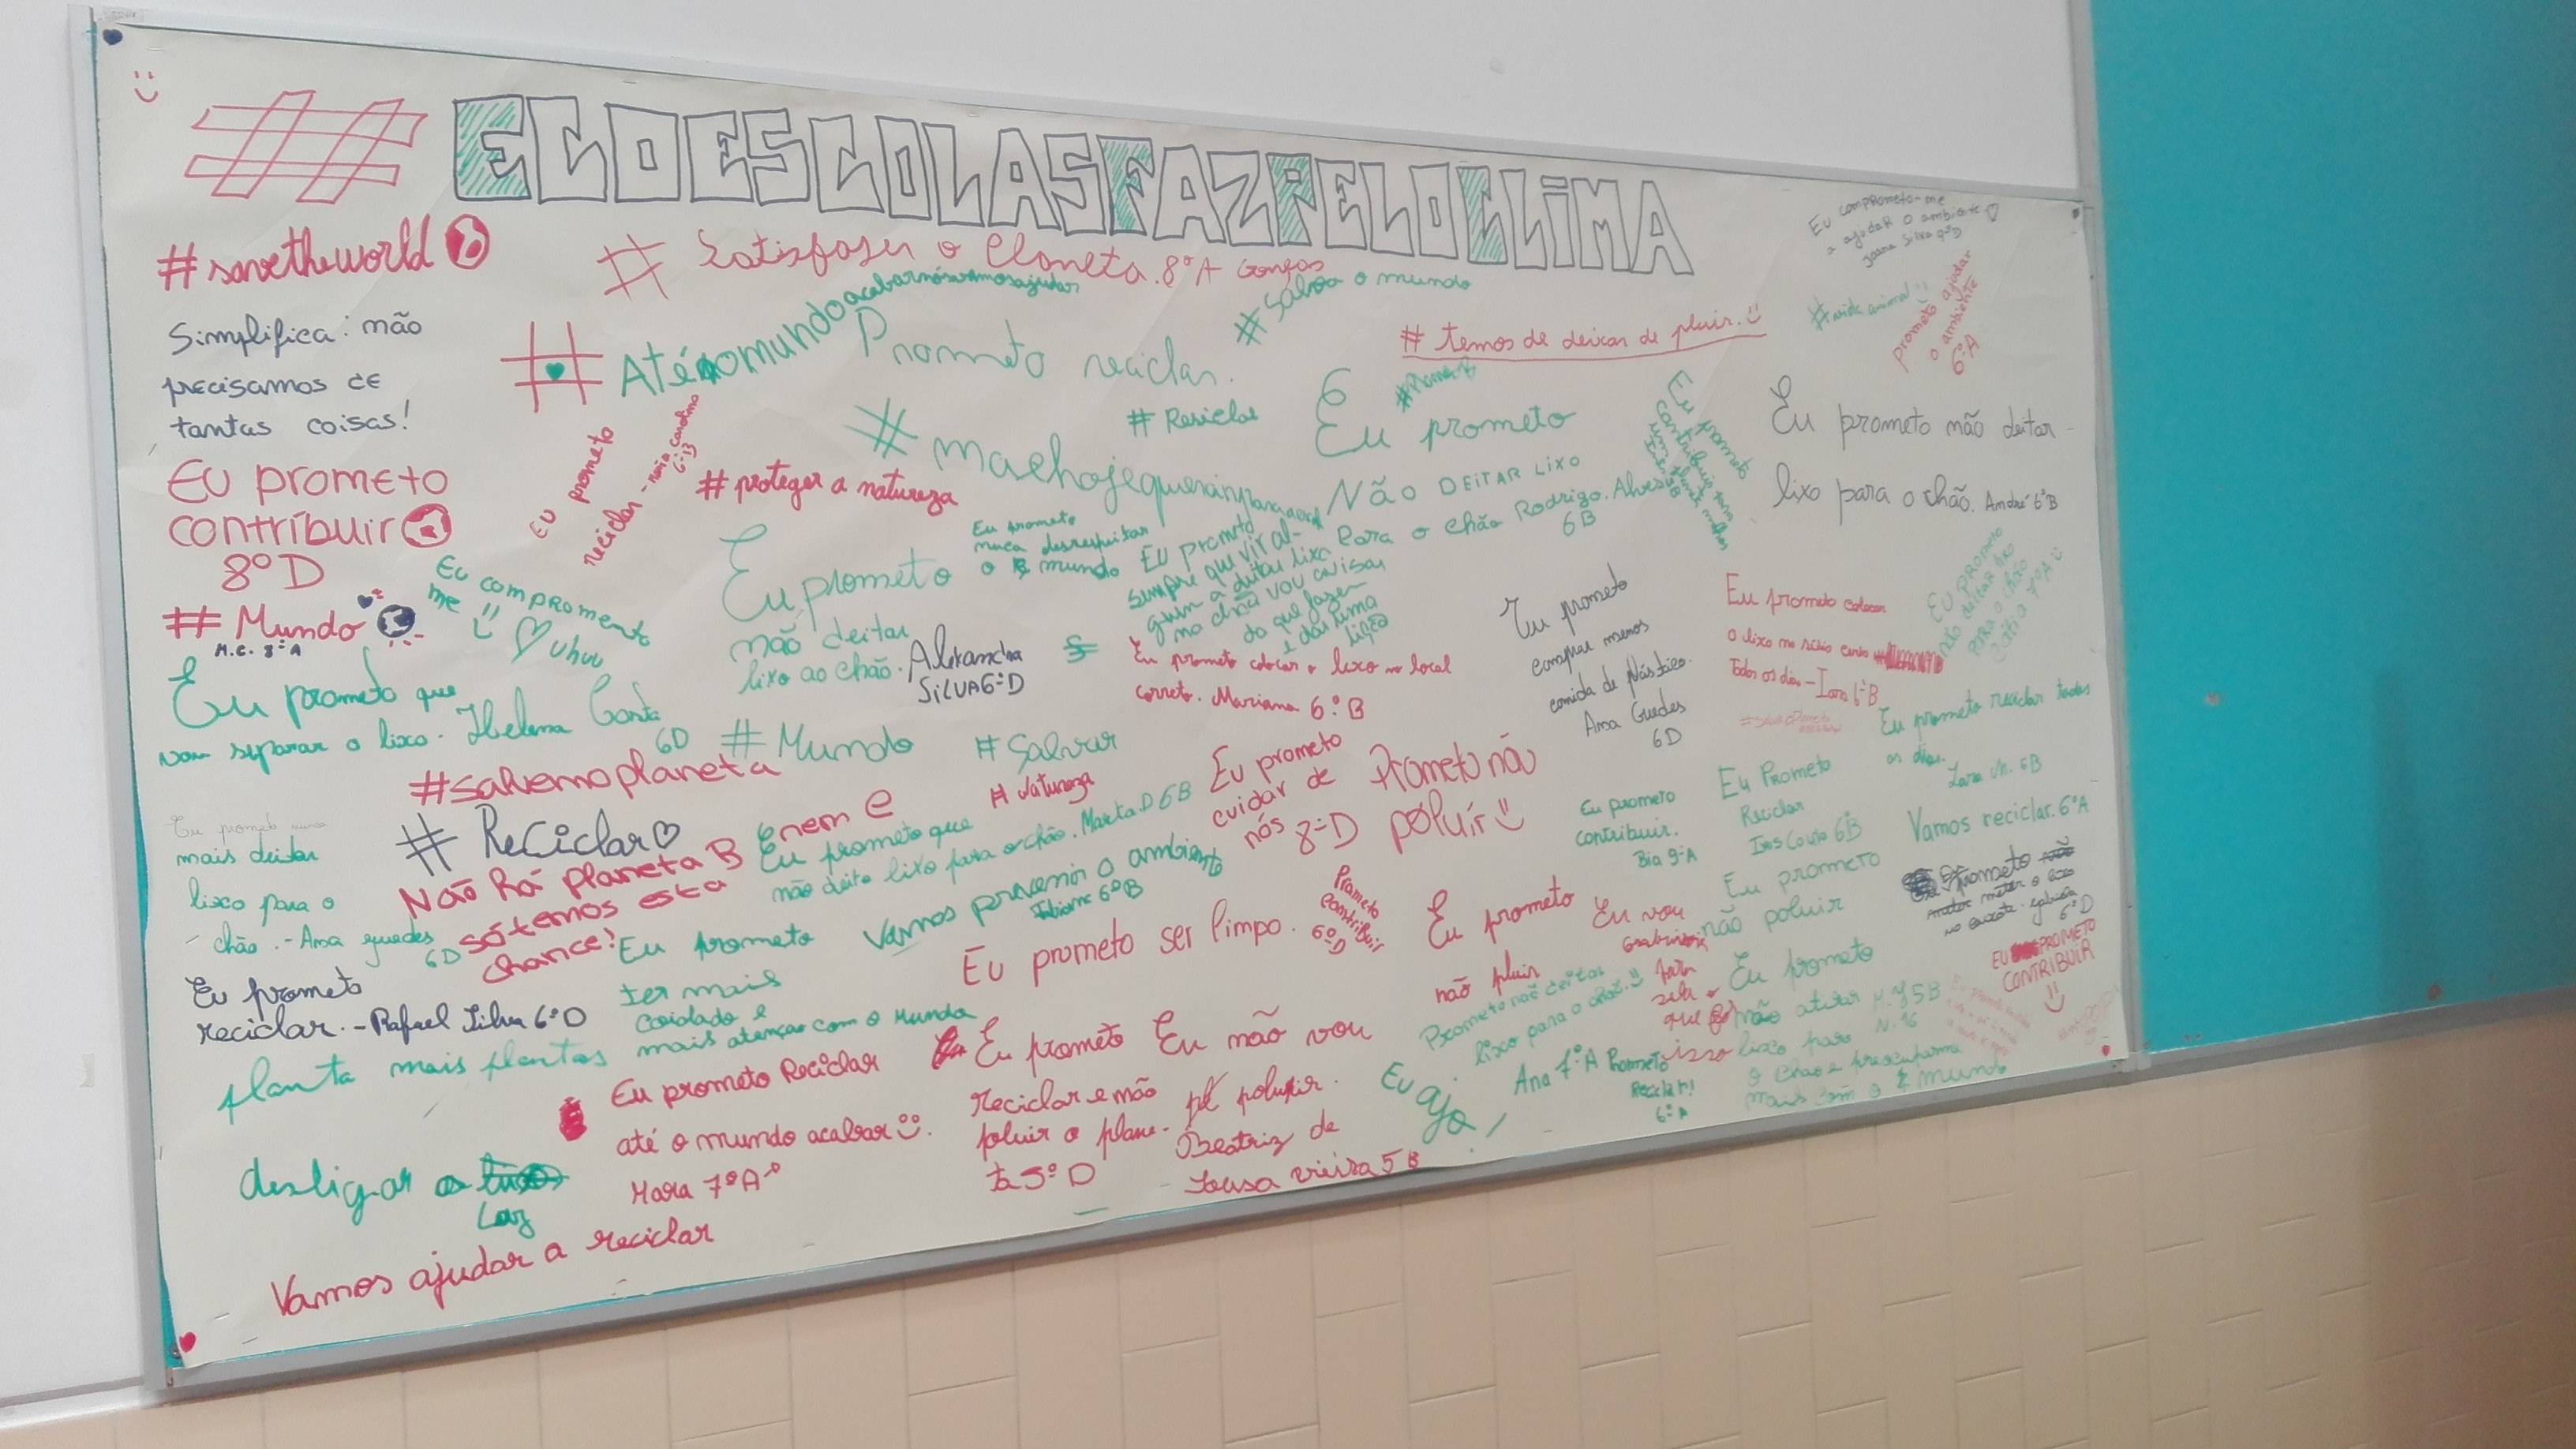 #ECOESCOLASFAZPELOCLIMA
#savetheworld
# Satisfaser o Planeta. 8ºA
#Salva o mundo
Simplifica: não
precisamos de
tantas coisas!
# Aténomundoacabarnósvamosajudar
Prometo reciclar.
# temos de deixar de pluir.
Eu comprometo-me
a ajudar o ambiente
Joana Silva 9ºD
#vida animal
Prometo ajudar
o ambiente
6ºA
# Reciclar
Eu prometo
contribuir
8ºD
Eu prometo
reciclar - maria carolina
# proteger a natureza
Eu prometo
NÃO DEITAR LIXO
Para o chão Rodrigo. Alves
6B
Eu prometo não deitar
lixo para o chão. André 6ºB
Eu prometo
contribuir para
um planeta melhor
# Mundo
M.C. 8ºA
Eu compromento
me
uhuu
Eu prometo
não deitar
lixo ao chão.
Alexandra
SILVA 6ºD
Eu prometo
nuca desrespeitar
o mundo
Eu prometo
sempre que vir al-
guem a deitar lixo
no chão vou avisar
do que fazer
e dar uma
lição
Eu prometo colocar o lixo no local
correto. Mariana 6ºB
Eu prometo
comprar menos
comida de plástico.
Ana Guedes
6D
Eu prometo colocar
o lixo no sitio certo
Todos os dias - Iara 6ºB
Eu prometo
não deitar lixo
para o chão
7ºA
Eu prometo que
vou separar o lixo. Helena Costa
6D
# Mundo
# Salvar
# Natureza
#salvemoplaneta
# Reciclar
Não há planeta B
enem e
só temos esta
chance!
Eu prometo que
não deito lixo para o chão. Marta D 6B
Eu prometo
cuidar de
nós 8ºD
Prometo não
poluír
Eu prometo reciclar todos
os dias.
Eu prometo
contribuir.
Bia 9ºA
Eu Prometo
Reciclar
Inês Couto 6ºB
Vamos reciclar. 6ºA
Eu prometo nunca
mais deitar
lixo para o
chão. - Ana guedes
6D
Vamos prevenir o ambiente
6ºB
Eu prometo
ter mais
coidado e
mais atenção com o mundo
Eu prometo ser limpo.
Prometo
contribuir
6ºD
Eu prometo
não pluir
Eu vou
Eu prometo
não poluir
Prometo
meter o lixo
6ºD
EU PROMETO
CONTRIBUIR
Eu prometo
reciclar. - Rafael Silva 6ºD
planta mais plantas
Eu prometo Reciclar
até o mundo acabar.
Mara 7ºA
Eu prometo
reciclar e não
poluir o plane-
ta 5ºD
Eu não vou
poluir.
Beatriz de
Sousa vieira 5B
Prometo não deitar
lixo para o chão.
Ana 7ºA
Eu ajo
Prometo
Reciclar!
6ºA
Eu prometo
não atirar
lixo para
o chão e preocuparme
mais com o mundo
desligar a
Luz
Vamos ajudar a reciclar